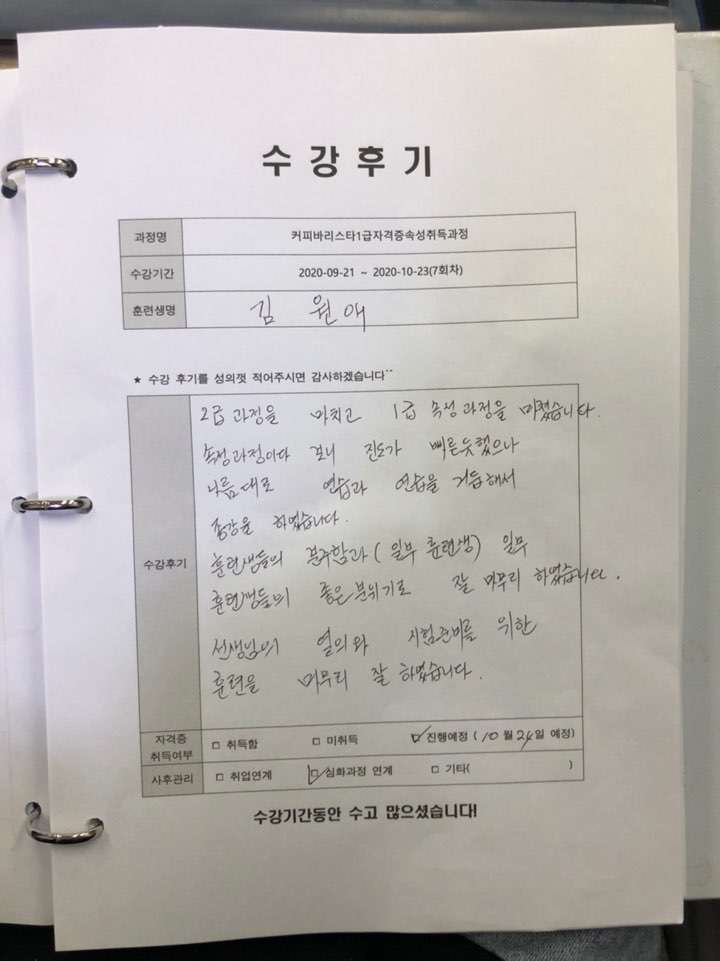 수강후기
과정명 커피바리스타1급자격증속성취득과정
수강기간 2020-09-21 ~ 2020-10-23(7회차)
훈련생명 김원애
★ 수강 후기를 성의껏 적어주시면 감사하겠습니다^^
2급 과정을 마치고 1급 속성과정을 마쳤습니다.
속성과정이다 보니 진도가 빠른듯했으나
나름대로 연습과 연습을 거듭해서
종강을 하였습니다.
수강후기
훈련생들의 분주함과 (일부 훈련생) 일부
훈련생들의 좋은분위기로 잘 마무리 하였습니다.
선생님의 열의와 시험준비를 위한
훈련을 마무리 잘 하였습니다.
자격증 취득여부 □ 취득함 □ 미취득 ☑ 진행예정 (10월 24일 예정)
사후관리 □ 취업연계 ☑ 심화과정 연계 □ 기타( )
수강기간동안 수고 많으셨습니다!